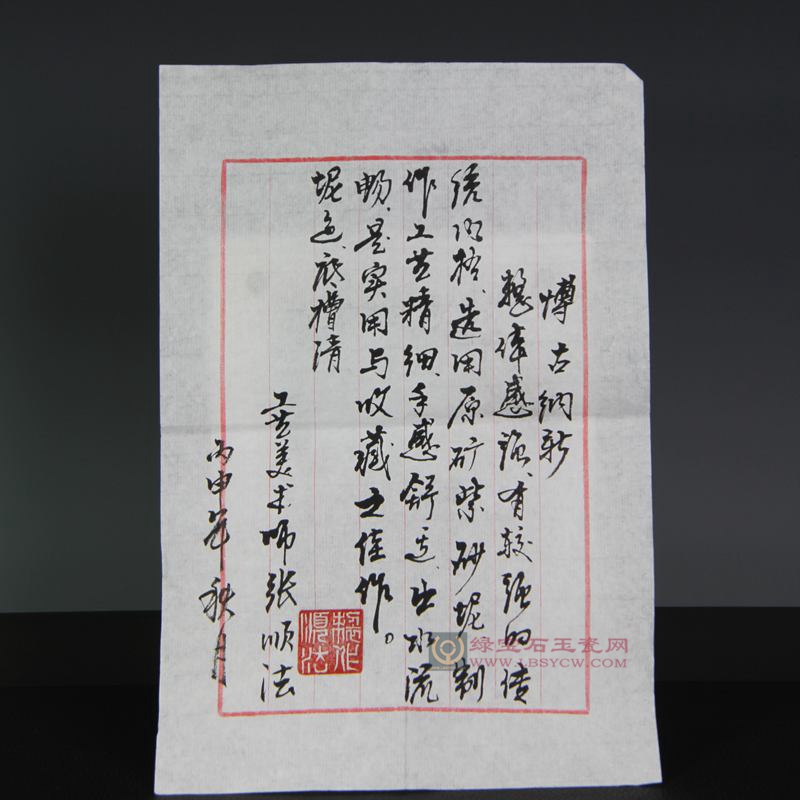 愽古纳新
整体感强、有较强的传
统风格、选用原矿紫砂坭制
作工艺精细、手感舒适、出水流
畅、是实用与收藏之佳作。
坭色、底槽清
工艺美术师张顺法
丙申年秋月
製作
順法
绿宝石玉瓷网
WWW.LBSYCW.COM